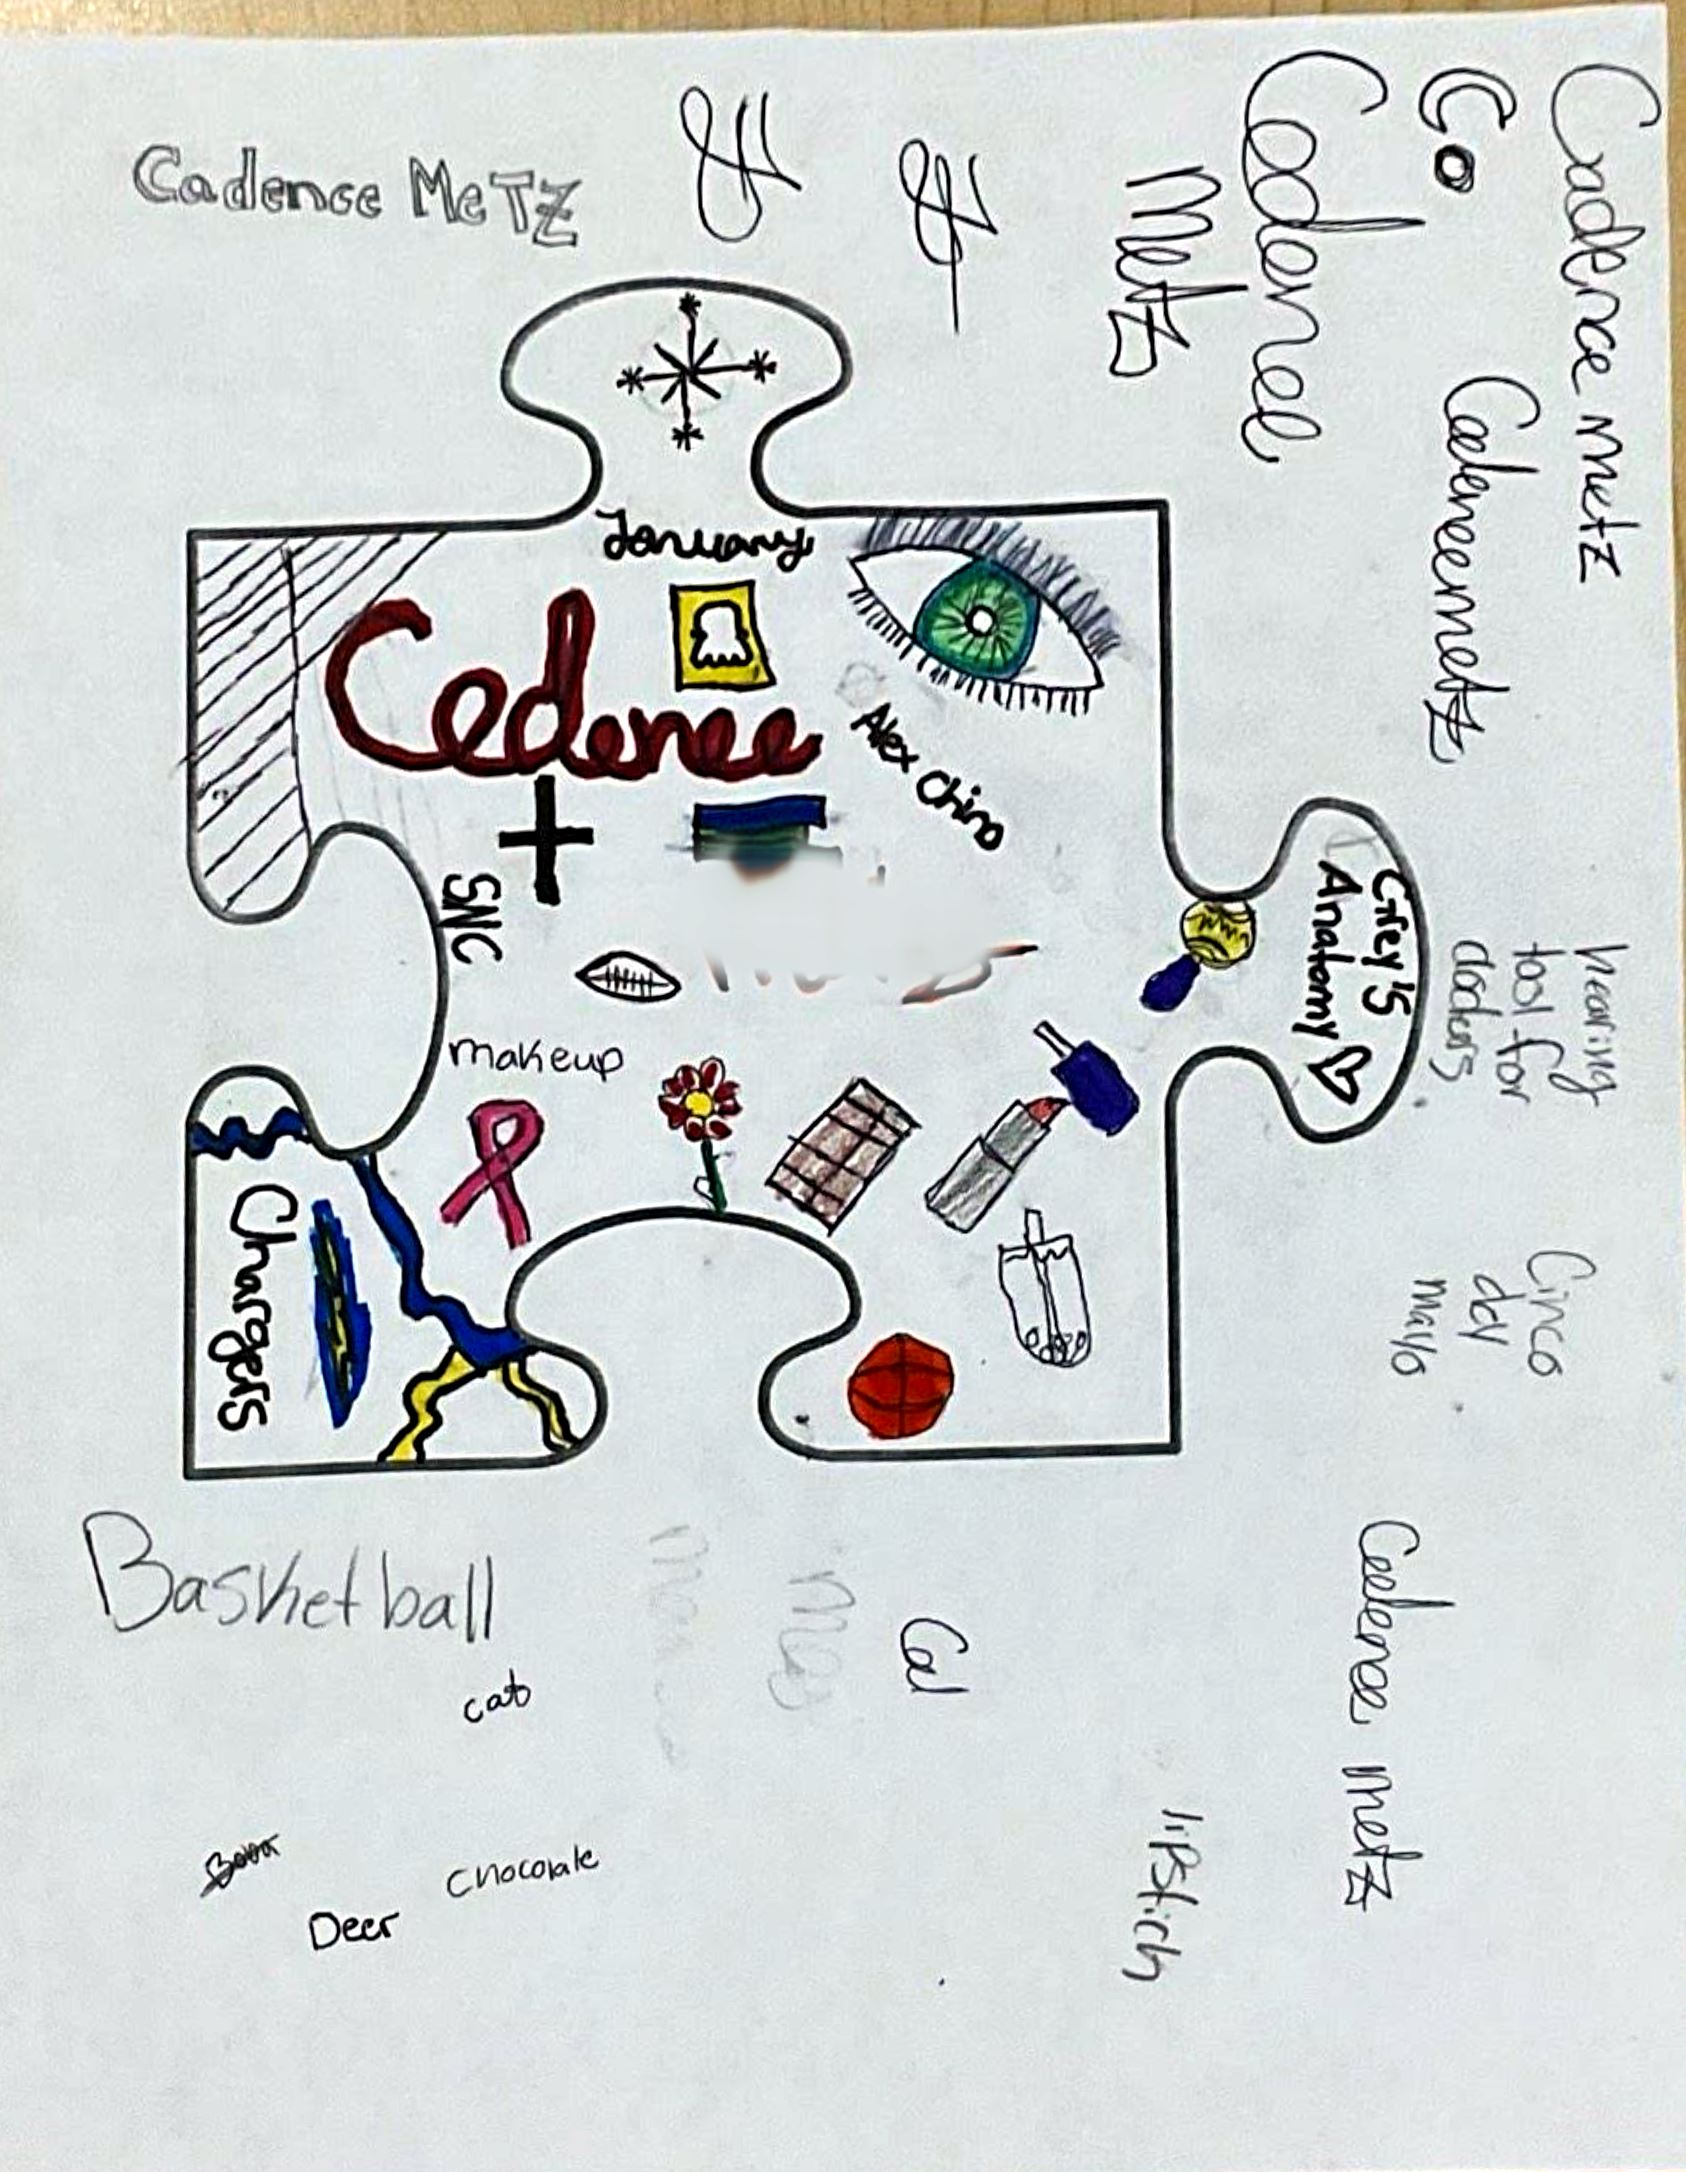 Cadence MeTZ
Cadence
Metz
Co
Cadence metz
Cadencemetz
January
Cadence
Alex Chino
SNC
makeup
Grey's
Anatomy
hearing
tool for
doctors
Chargers
Cinco
dey
mayo
Basketball
Cal
Cadence metz
cat
lipstick
Chocolate
Deer